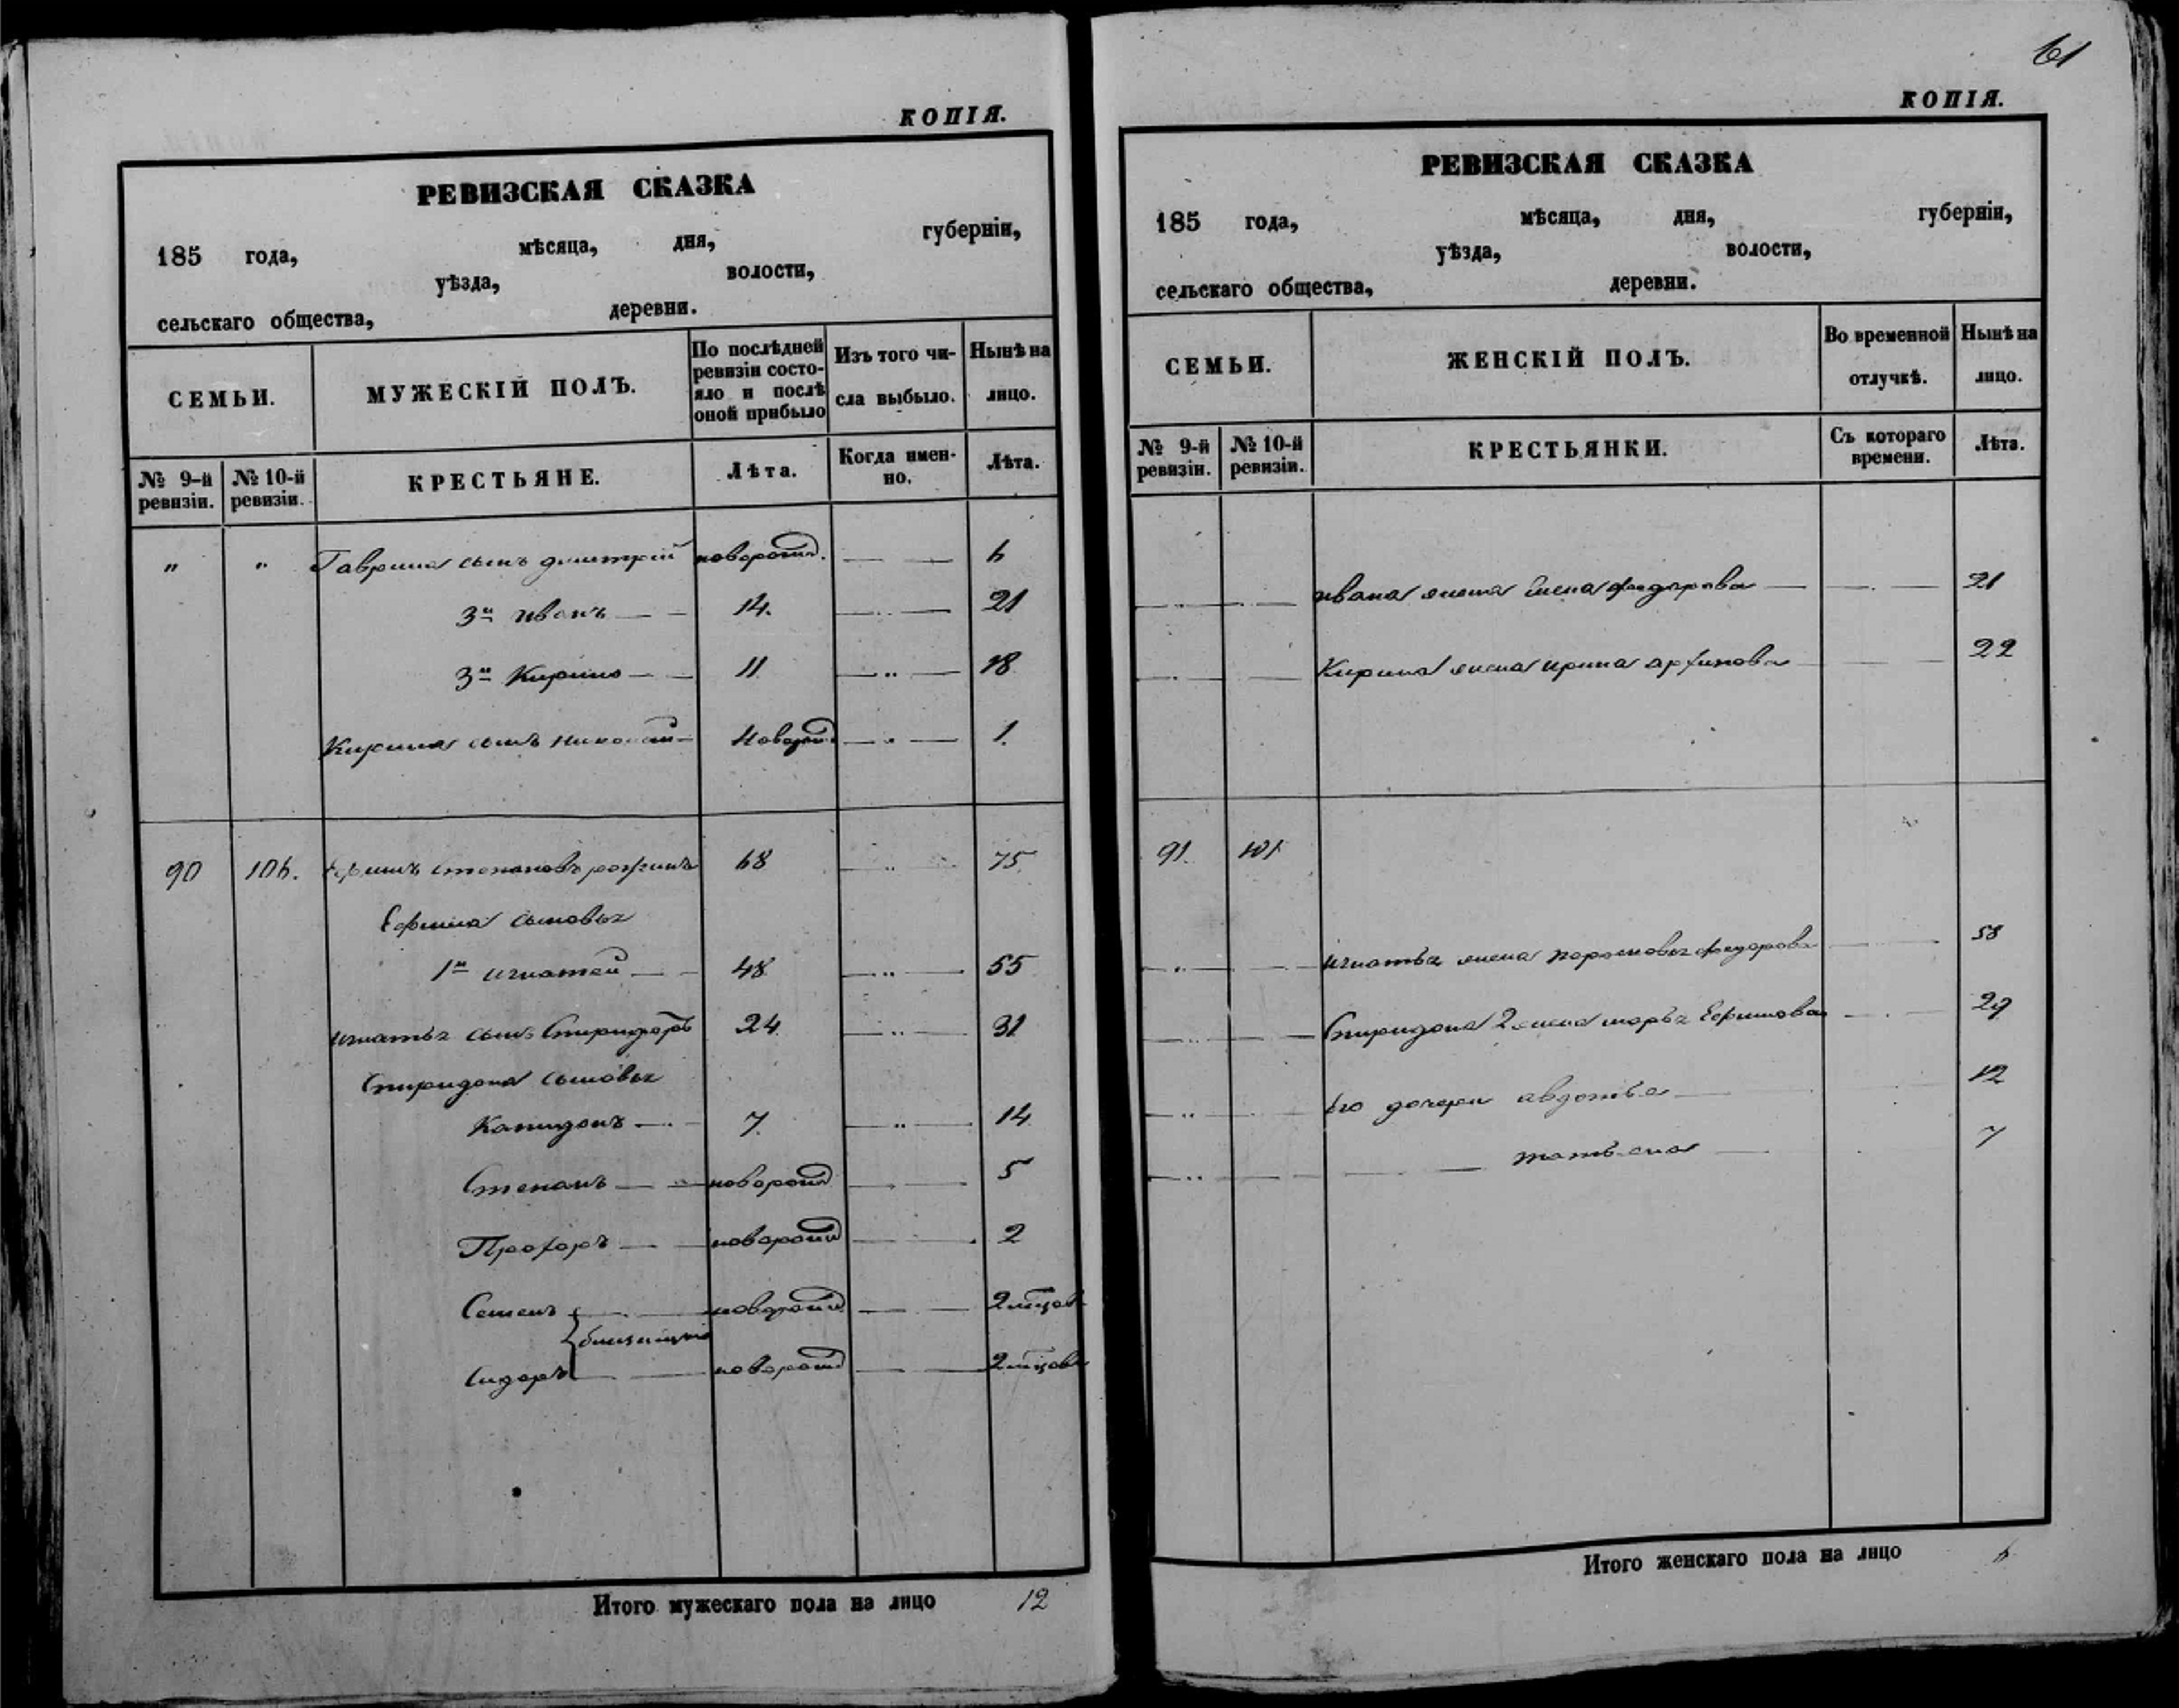 КОПІЯ.
РЕВИЗСКАЯ СКАЗКА
185 года, мѣсяца, дня, губерніи,
уѣзда, волости,
сельскаго общества, деревни.
СЕМЬИ. МУЖЕСКІЙ ПОЛЪ. По послѣдней ревизіи состояло и послѣ оной прибыло Изъ того числа выбыло. Нынѣ на лицо.
№ 9-й ревизіи. № 10-й ревизіи. КРЕСТЬЯНЕ. Лѣта. Когда именно. Лѣта.
" " Гаврила сынъ дмитрей новорожд. 6
3й иванъ 14. 21
3й Кирило 11 18
Кирила сынъ николай новорожд 1.
90 106. Ефимъ степановъ 68 75
Ефима сыновья
1й игнатей 48 55
игнатья сынъ Спиридонъ 24 31
Спиридона сыновья
Капидонъ 7. 14
Степанъ новорожд 5
Прохоръ новорожд 2
Семенъ новорожд 2 мѣсяц
близнецы
Сидоръ новорожд 2 мѣсяц
Итого мужескаго пола на лицо 12
61
КОПІЯ.
РЕВИЗСКАЯ СКАЗКА
185 года, мѣсяца, дня, губерніи,
уѣзда, волости,
сельскаго общества, деревни.
СЕМЬИ. ЖЕНСКІЙ ПОЛЪ. Во временной отлучкѣ. Нынѣ на лицо.
№ 9-й ревизіи. № 10-й ревизіи. КРЕСТЬЯНКИ. Съ котораго времени. Лѣта.
ивана жена Елена федорова 21
Кирила жена ирина 22
91. 101
игнатья жена парасковья федорова 58
Спиридона 2 жена марья Ефимова 29
Его дочери авдотья 12
татьяна 7
Итого женскаго пола на лицо 6